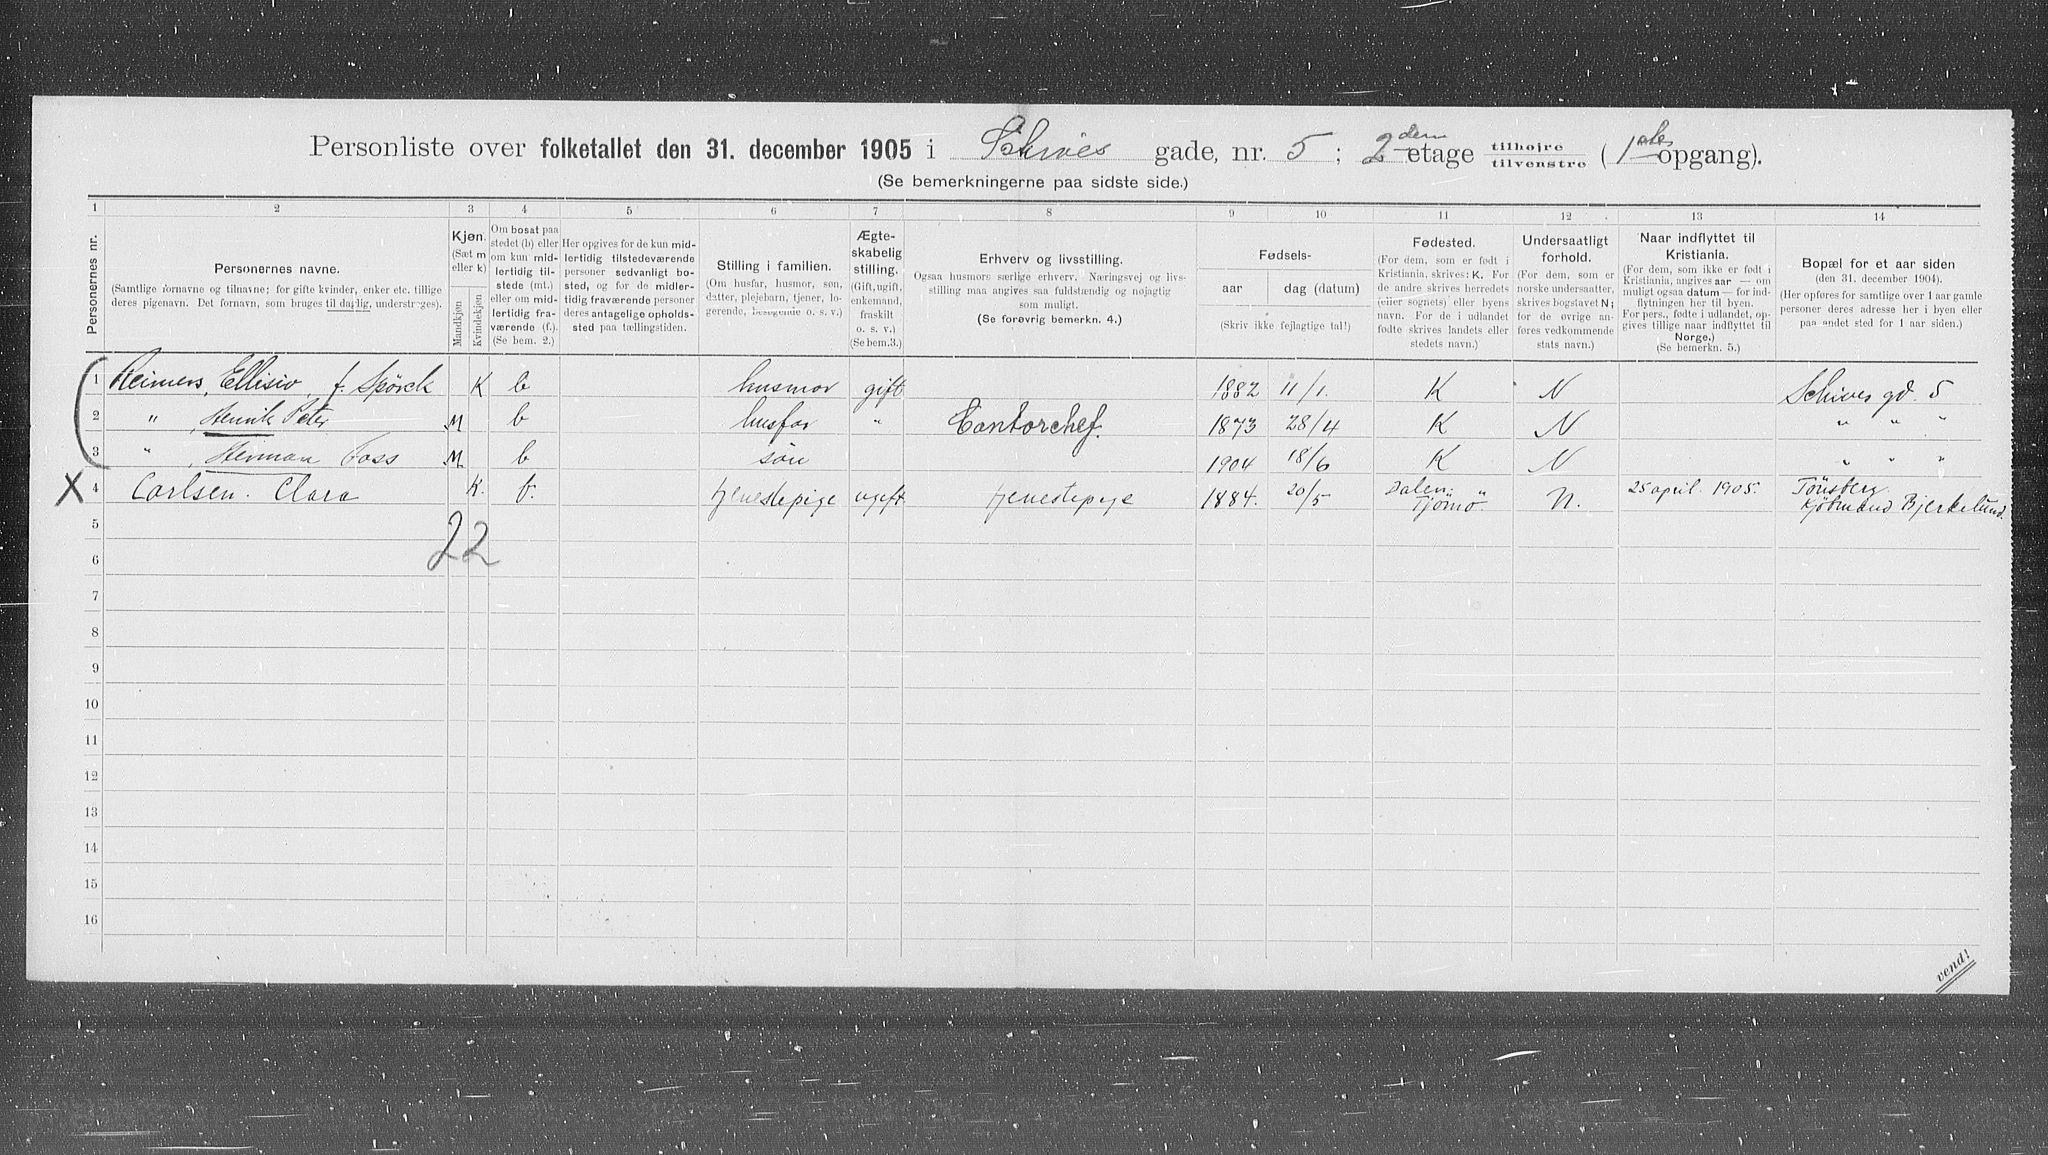 Personliste over folketallet den 31. december 1905 i Schives gade, nr. 5; 2den etage tilhøjre tilvenstre (1ste opgang).
(Se bemerkningerne paa sidste side.)
1 2 3 4 5 6 7 8 9 10 11 12 13 14
Personernes nr.
Personernes navne.
(Samtlige fornavne og tilnavne; for gifte kvinder, enker etc. tillige
deres pigenavn. Det fornavn, som bruges til daglig, understreges).
Kjøn.
(Sæt m
eller k)
Mandkjøn
Kvindekjøn
Om bosat paa
stedet (b) eller
om kun mid-
lertidig til-
stede (mt.)
eller om mid-
lertidig fra-
værende (f.).
(Se bem. 2.)
Her opgives for de kun mid-
lertidig tilstedeværende
personer sedvanligt bo-
sted, og for de midler-
tidig fraværende personer
deres antagelige opholds-
sted paa tællingstiden.
Stilling i familien.
(Om husfar, husmor, søn,
datter, plejebarn, tjener, lo-
gerende, besøgende o. s. v.)
Ægte-
skabelig
stilling.
(Gift, ugift,
enkemand,
fraskilt
o. s. v.)
(Se bem. 3.)
Erhverv og livsstilling.
Ogsaa husmors særlige erhverv. Næringsvej og livs-
stilling maa angives saa fuldstændig og nøjagtig
som muligt.
(Se forøvrig bemerkn. 4.)
Fødsels-
aar
dag (datum)
(Skriv ikke fejlagtige tal!)
Fødested.
(For dem, som er født i
Kristiania, skrives: K. For
de andre skrives herredets
(eller sognets) eller byens
navn. For de i udlandet
fødte skrives landets eller
stedets navn.)
Undersaatligt
forhold.
(For dem, som er
norske undersaatter,
skrives bogstavet N;
for de øvrige an-
føres vedkommende
stats navn.)
Naar indflyttet til
Kristiania.
(For dem, som ikke er født i
Kristiania, angives aar — om
muligt ogsaa datum — for ind-
flytningen her til byen.
For pers., fødte i udlandet, op-
gives tillige naar indflyttet til
Norge.)
(Se bemerkn. 5.)
Bopæl for et aar siden
(den 31. december 1904).
(Her opføres for samtlige over 1 aar gamle
personer deres adresse her i byen eller
paa andet sted for 1 aar siden.)
1 Reimers, Ellisiv f. Spörck K b husmor gift 1882 11/1. K N Schives gd. 5
2 " , Henrik Peter M b husfar " Contorchef. 1873 28/4 K N " " "
3 " , Herman Foss M b søn 1904 18/6 K N " " "
X 4 Carlsen. Clara K. b. tjenestepige ugift tjenestepige 1884. 20/5 Dalen. Tjömö N. 25 april. 1905. Tönsberg. Kjöbmand Bjerkelund.
5
22
6
7
8
9
10
11
12
13
14
15
16
vend!